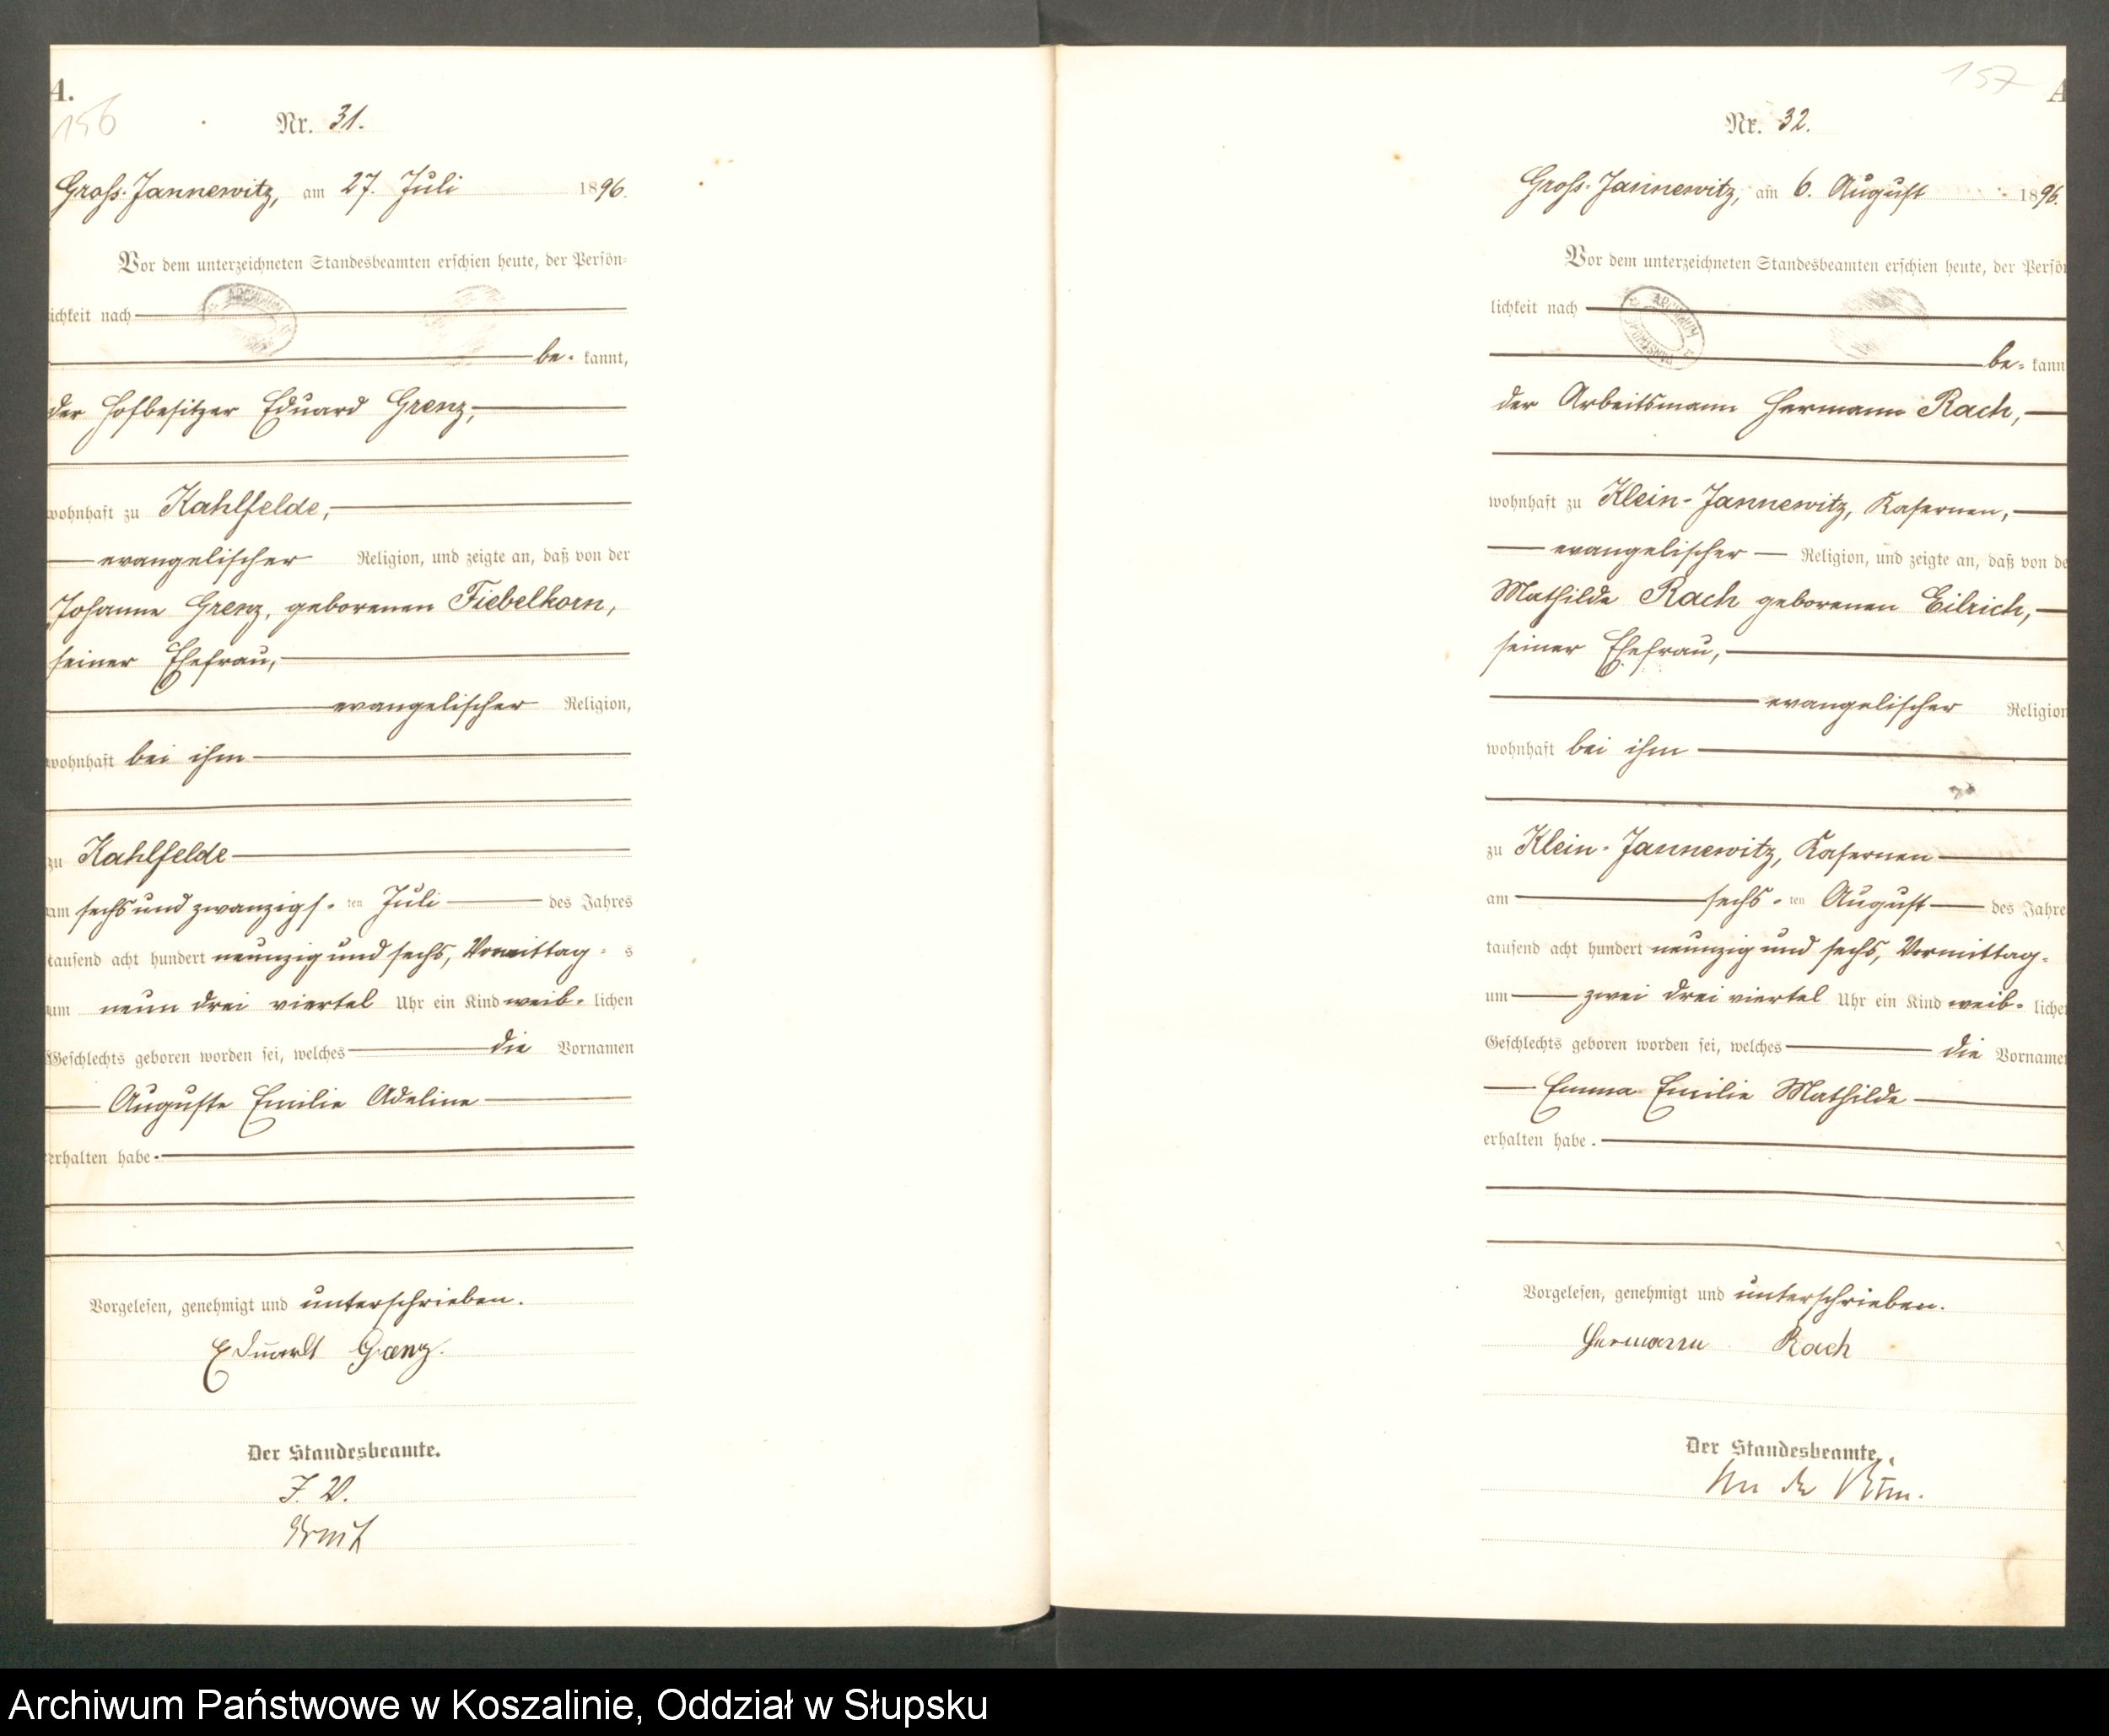 A.
156
Nr. 31.
Groß-Jannewitz, am 27. Juli 1896.
Vor dem unterzeichneten Standesbeamten erschien heute, der Persön-
lichkeit nach
be- kannt,
der Hofbesitzer Eduard Grenz,
wohnhaft zu Kahlfelde,
evangelischer Religion, und zeigte an, daß von der
Johanne Grenz, geborenen Fiebelkorn,
seiner Ehefrau,
evangelischer Religion,
wohnhaft bei ihm
zu Kahlfelde
am sechs und zwanzigs- ten Juli des Jahres
tausend acht hundert neunzig und sechs, Vormittag- s
um neun drei viertel Uhr ein Kind weib- lichen
Geschlechts geboren worden sei, welches die Vornamen
Auguste Emilie Adeline
erhalten habe.
Vorgelesen, genehmigt und unterschrieben.
Eduardt Grenz.
Der Standesbeamte.
J. V.
157
A
Nr. 32.
Groß-Jannewitz, am 6. August 1896.
Vor dem unterzeichneten Standesbeamten erschien heute, der Persön
lichkeit nach
be- kann
der Arbeitsmann Hermann Rach,
wohnhaft zu Klein-Jannewitz, Kasernen,
evangelischer Religion, und zeigte an, daß von de
Mathilde Rach geborenen Eilrich,
seiner Ehefrau,
evangelischer Religion
wohnhaft bei ihm
zu Klein-Jannewitz, Kasernen
am sechs- ten August des Jahre
tausend acht hundert neunzig und sechs, Vormittag-
um zwei drei viertel Uhr ein Kind weib- liche
Geschlechts geboren worden sei, welches die Vorname
Emma Emilie Mathilde
erhalten habe.
Vorgelesen, genehmigt und unterschrieben.
Hermann Rach
Der Standesbeamte.
Archiwum Państwowe w Koszalinie, Oddział w Słupsku